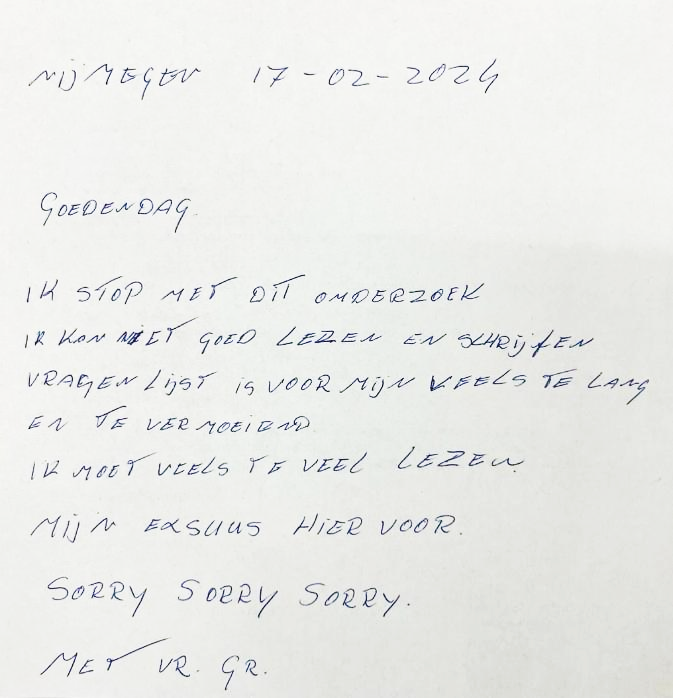 NIJMEGEN 17-02-2024
GOEDENDAG.
IK STOP MET DIT ONDERZOEK
IK KAN NIET GOED LEZEN EN SCHRIJFEN
VRAGEN LIJST is VOOR MIJN VEELS TE LANG
EN TE VERMOEIEND.
IK MOET VEELS TE VEEL LEZEN.
MIJN EXSUUS HIER VOOR.
SORRY SORRY SORRY.
MET VR. GR.